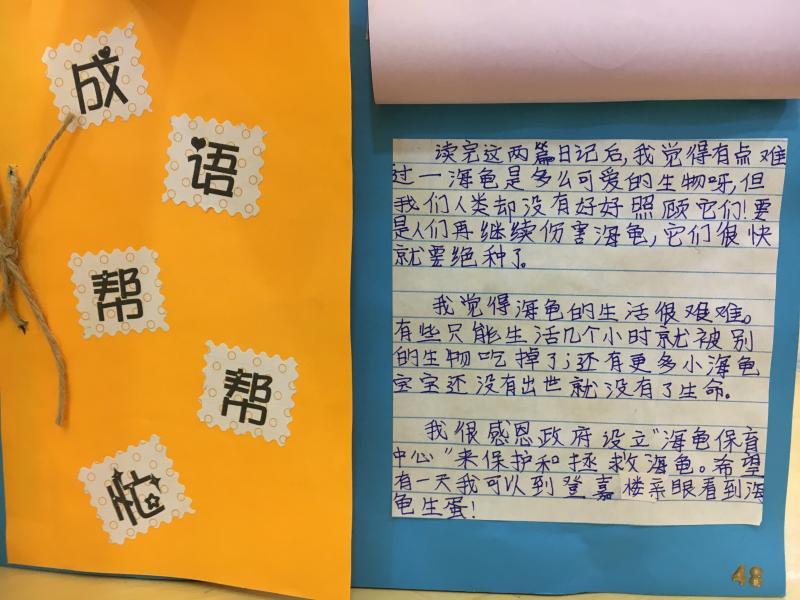 成
语
帮
帮
忙
读完这两篇日记后，我觉得有点难
过一海龟是多么可爱的生物呀，但
我们人类却没有好好照顾它们！要
是人们再继续伤害海龟，它们很快
就要绝种了。
我觉得海龟的生活很难难。
有些只能生活几个小时就被别
的生物吃掉了；还有更多小海龟
宝宝还没有出世就没有了生命。
我很感恩政府设立“海龟保育
中心”来保护和拯救海龟。希望
有一天我可以到登嘉楼亲眼看到海
龟生蛋！
48